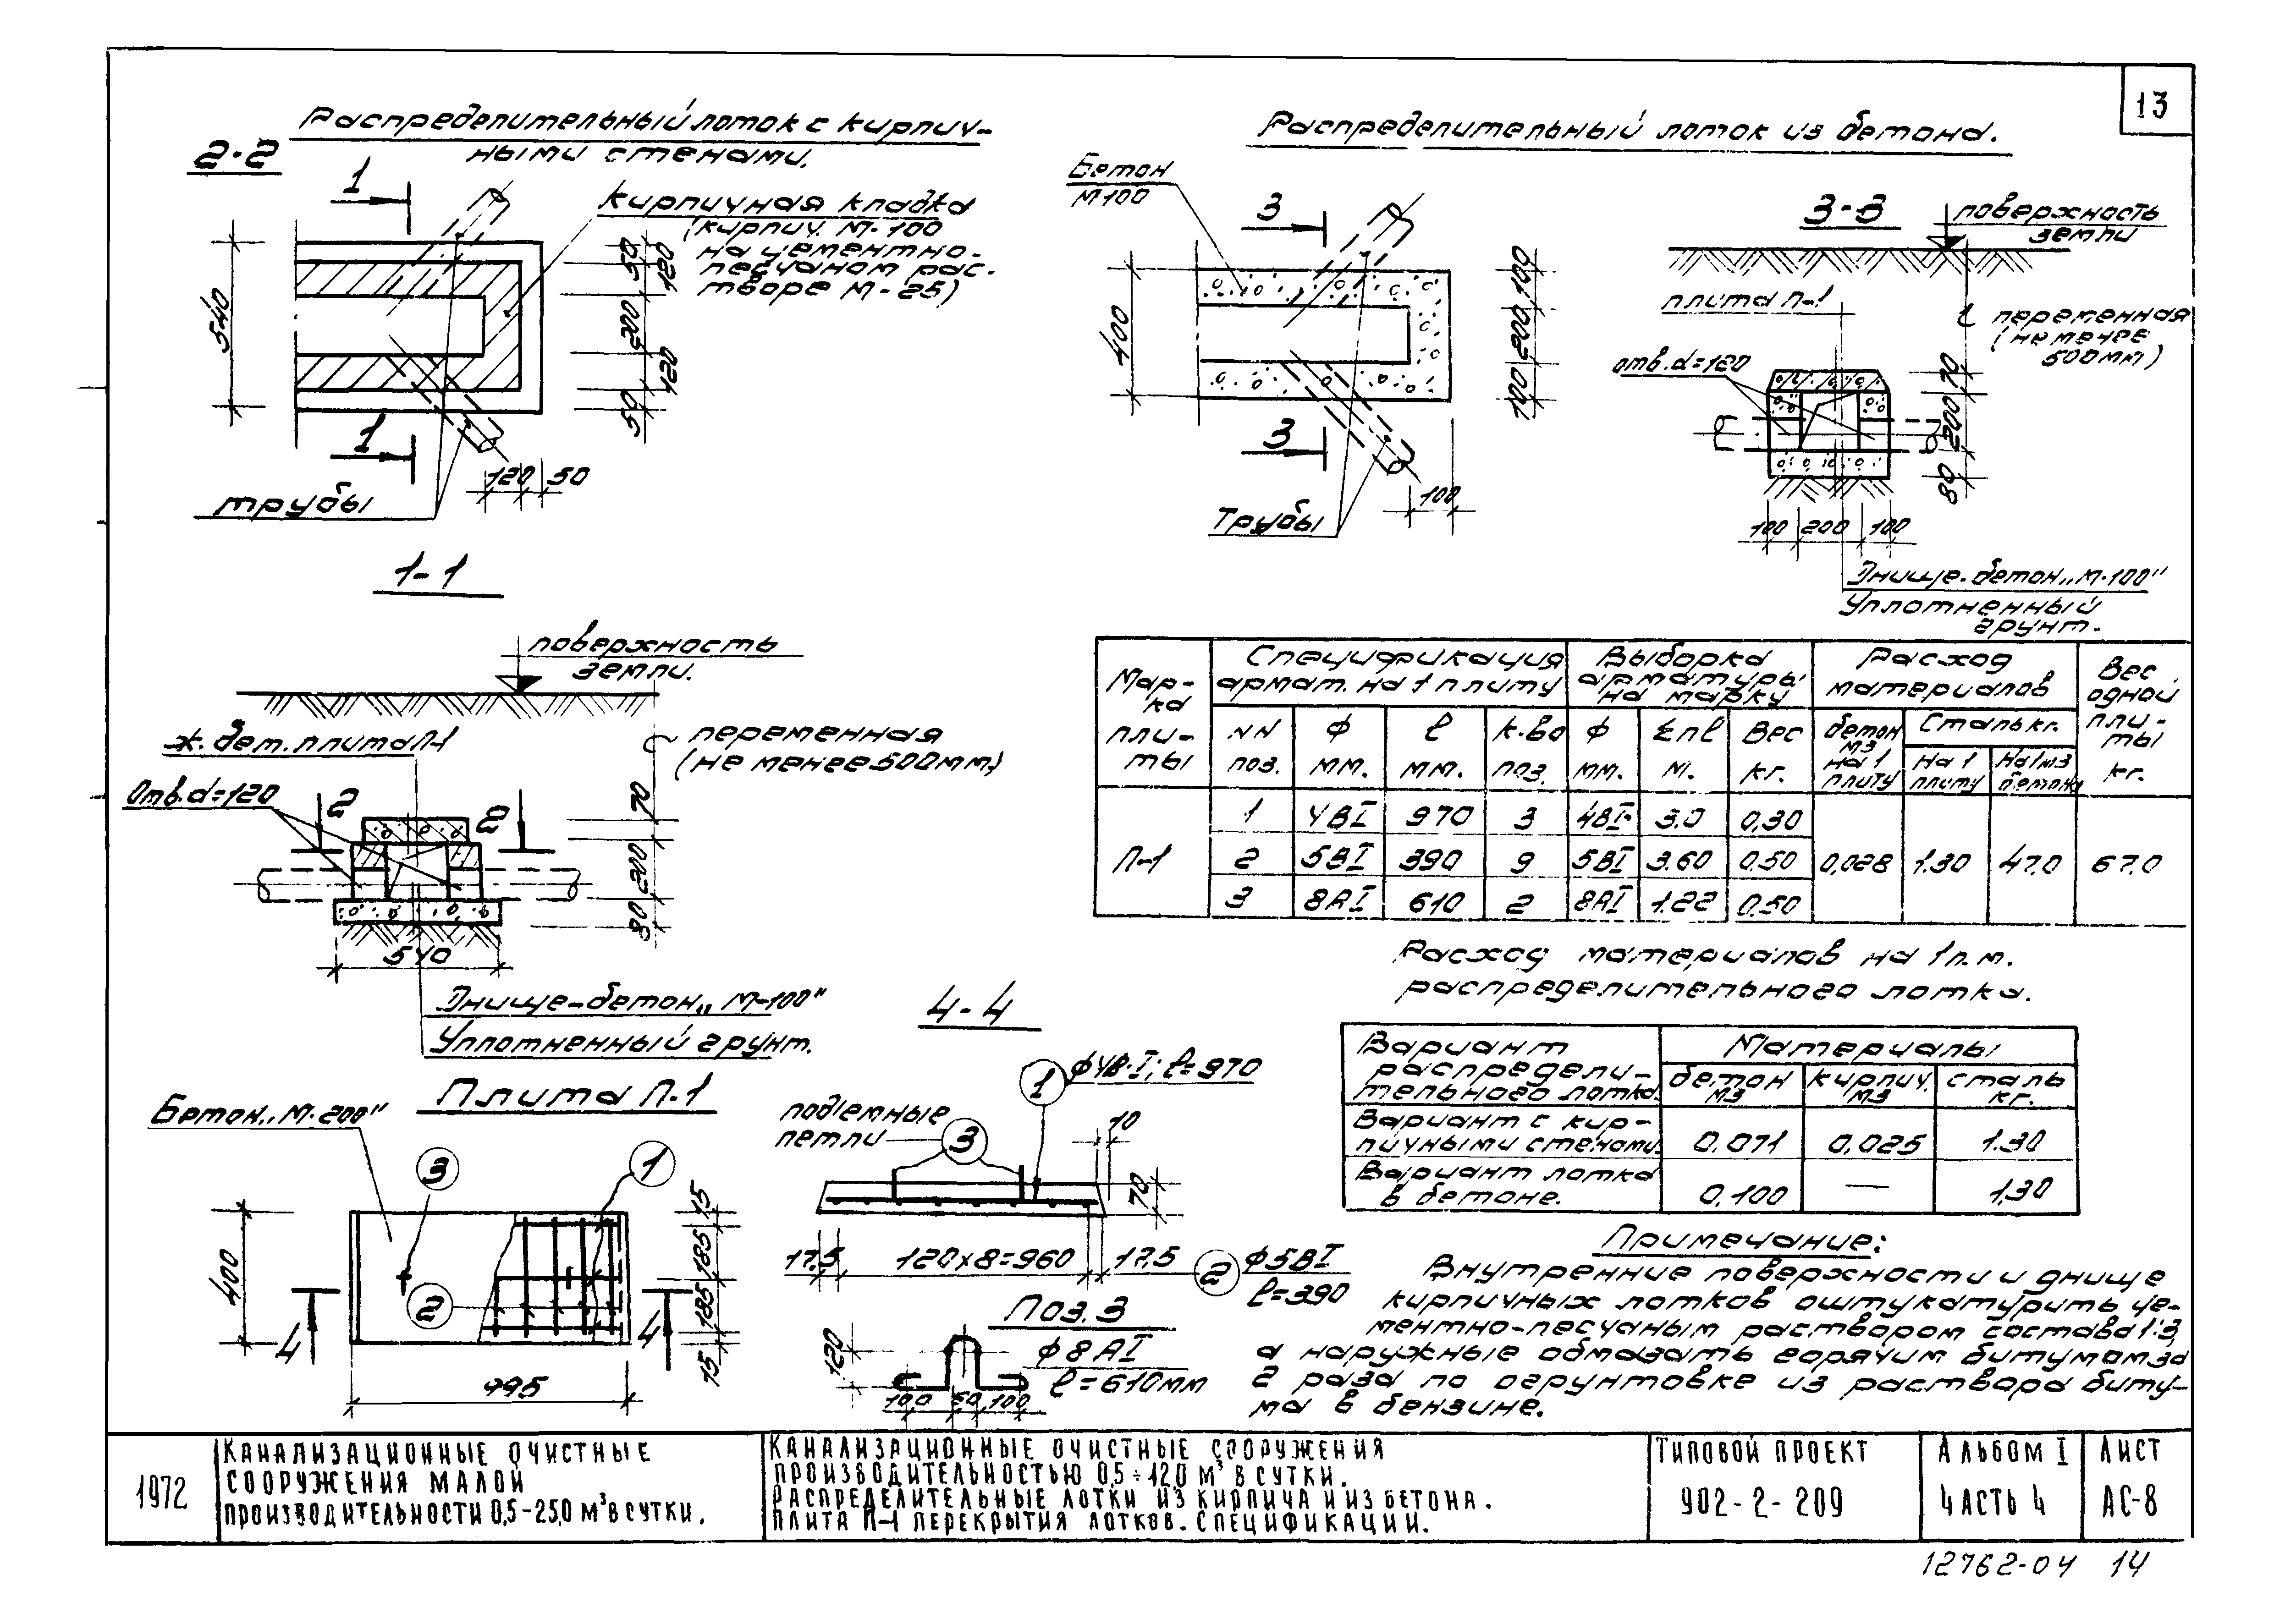 13
Распределительный лоток с кирпич-
ными стенами.
2-2
1
Кирпичная кладка
(кирпич. М-100
на цементно-
песчаном рас-
творе М-25)
540
50
120
200
120
50
1
120 50
трубы
Распределительный лоток из бетона.
Бетон
М100
3
400
100
200
100
3
100
Трубы
3-3
поверхность
земли
плита П-1
переменная
(не менее
500мм)
отв. d=120
70
200
80
100 200 100
Днище-бетон „М-100"
Уплотненный
грунт.
1-1
поверхность
земли.
ж.бет. плита П-1
переменная
(не менее 500мм)
Отв. d=120
2
2
70
200
80
540
Днище-бетон „М-100"
Уплотненный грунт.
Мар-
ка
пли-
ты
Спецификация
армат. на 1 плиту
Выборка
арматуры
на марку
Расход
материалов
Вес
одной
пли-
ты
кг.
NN
поз.
Ф
мм.
ℓ
мм.
к-во
поз.
Ф
мм.
Σпℓ
м.
Вес
кг.
бетон
м3
на 1
плиту
Сталь кг.
На 1
плиту
На 1м3
бетона
П-1
1 4ВI 970 3 4ВI 3.0 0,30
2 5ВI 390 9 5ВI 3.60 0.50 0,028 1.30 47.0 67.0
3 8АI 610 2 8АI 1.22 0.50
Расход материалов на 1п.м.
распределительного лотка.
Вариант
распредели-
тельного лотка.
Материалы
бетон
м3
кирпич.
м3
сталь
кг.
Вариант с кир-
пичными стенами. 0.071 0,025 1.30
Вариант лотка
в бетоне. 0.100 — 1.30
Плита П-1
Бетон „М-200"
3
1
400
2
4
4
15
185
185
15
995
4-4
1
Ф4В-I; ℓ=970
подъемные
петли
3
10
70
17.5 120х8=960 17.5
2
Ф5ВI
ℓ=390
Поз. 3
120
Ф8АI
ℓ=610мм
100 60 100
Примечание:
Внутренние поверхности и днище
кирпичных лотков оштукатурить це-
ментно-песчаным раствором состава 1:3,
а наружные обмазать горячим битумом за
2 раза по огрунтовке из раствора биту-
ма в бензине.
1972
Канализационные очистные
сооружения малой
производительности 0,5-250 м³ в сутки.
Канализационные очистные сооружения
производительностью 0,5÷12,0 м³ в сутки.
Распределительные лотки из кирпича и из бетона.
Плита П-1 перекрытия лотков. Спецификации.
Типовой проект
902-2-209
Альбом I
Часть 4
Лист
АС-8
12762-04 14